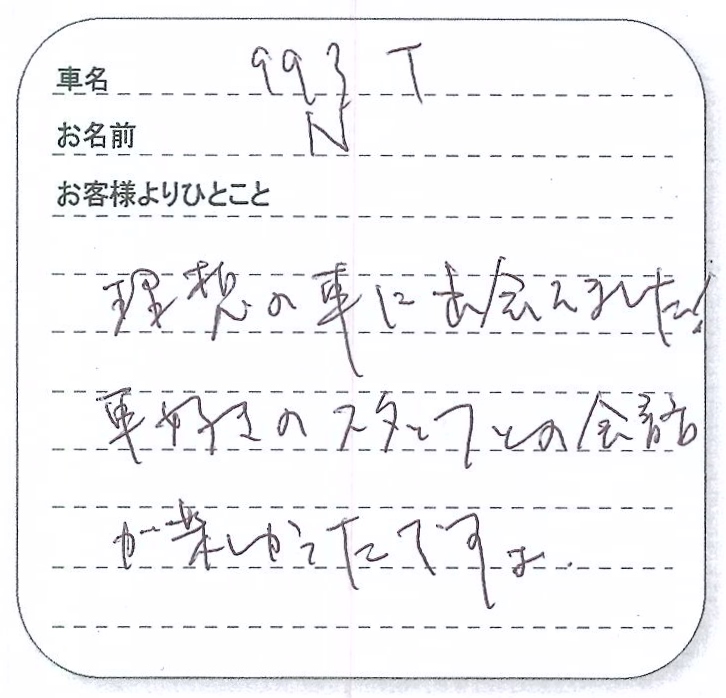 車名 993 T
お名前 N
お客様よりひとこと
理想の車に出会えました!
車好きのスタッフとの会話
が楽しかったですよ.